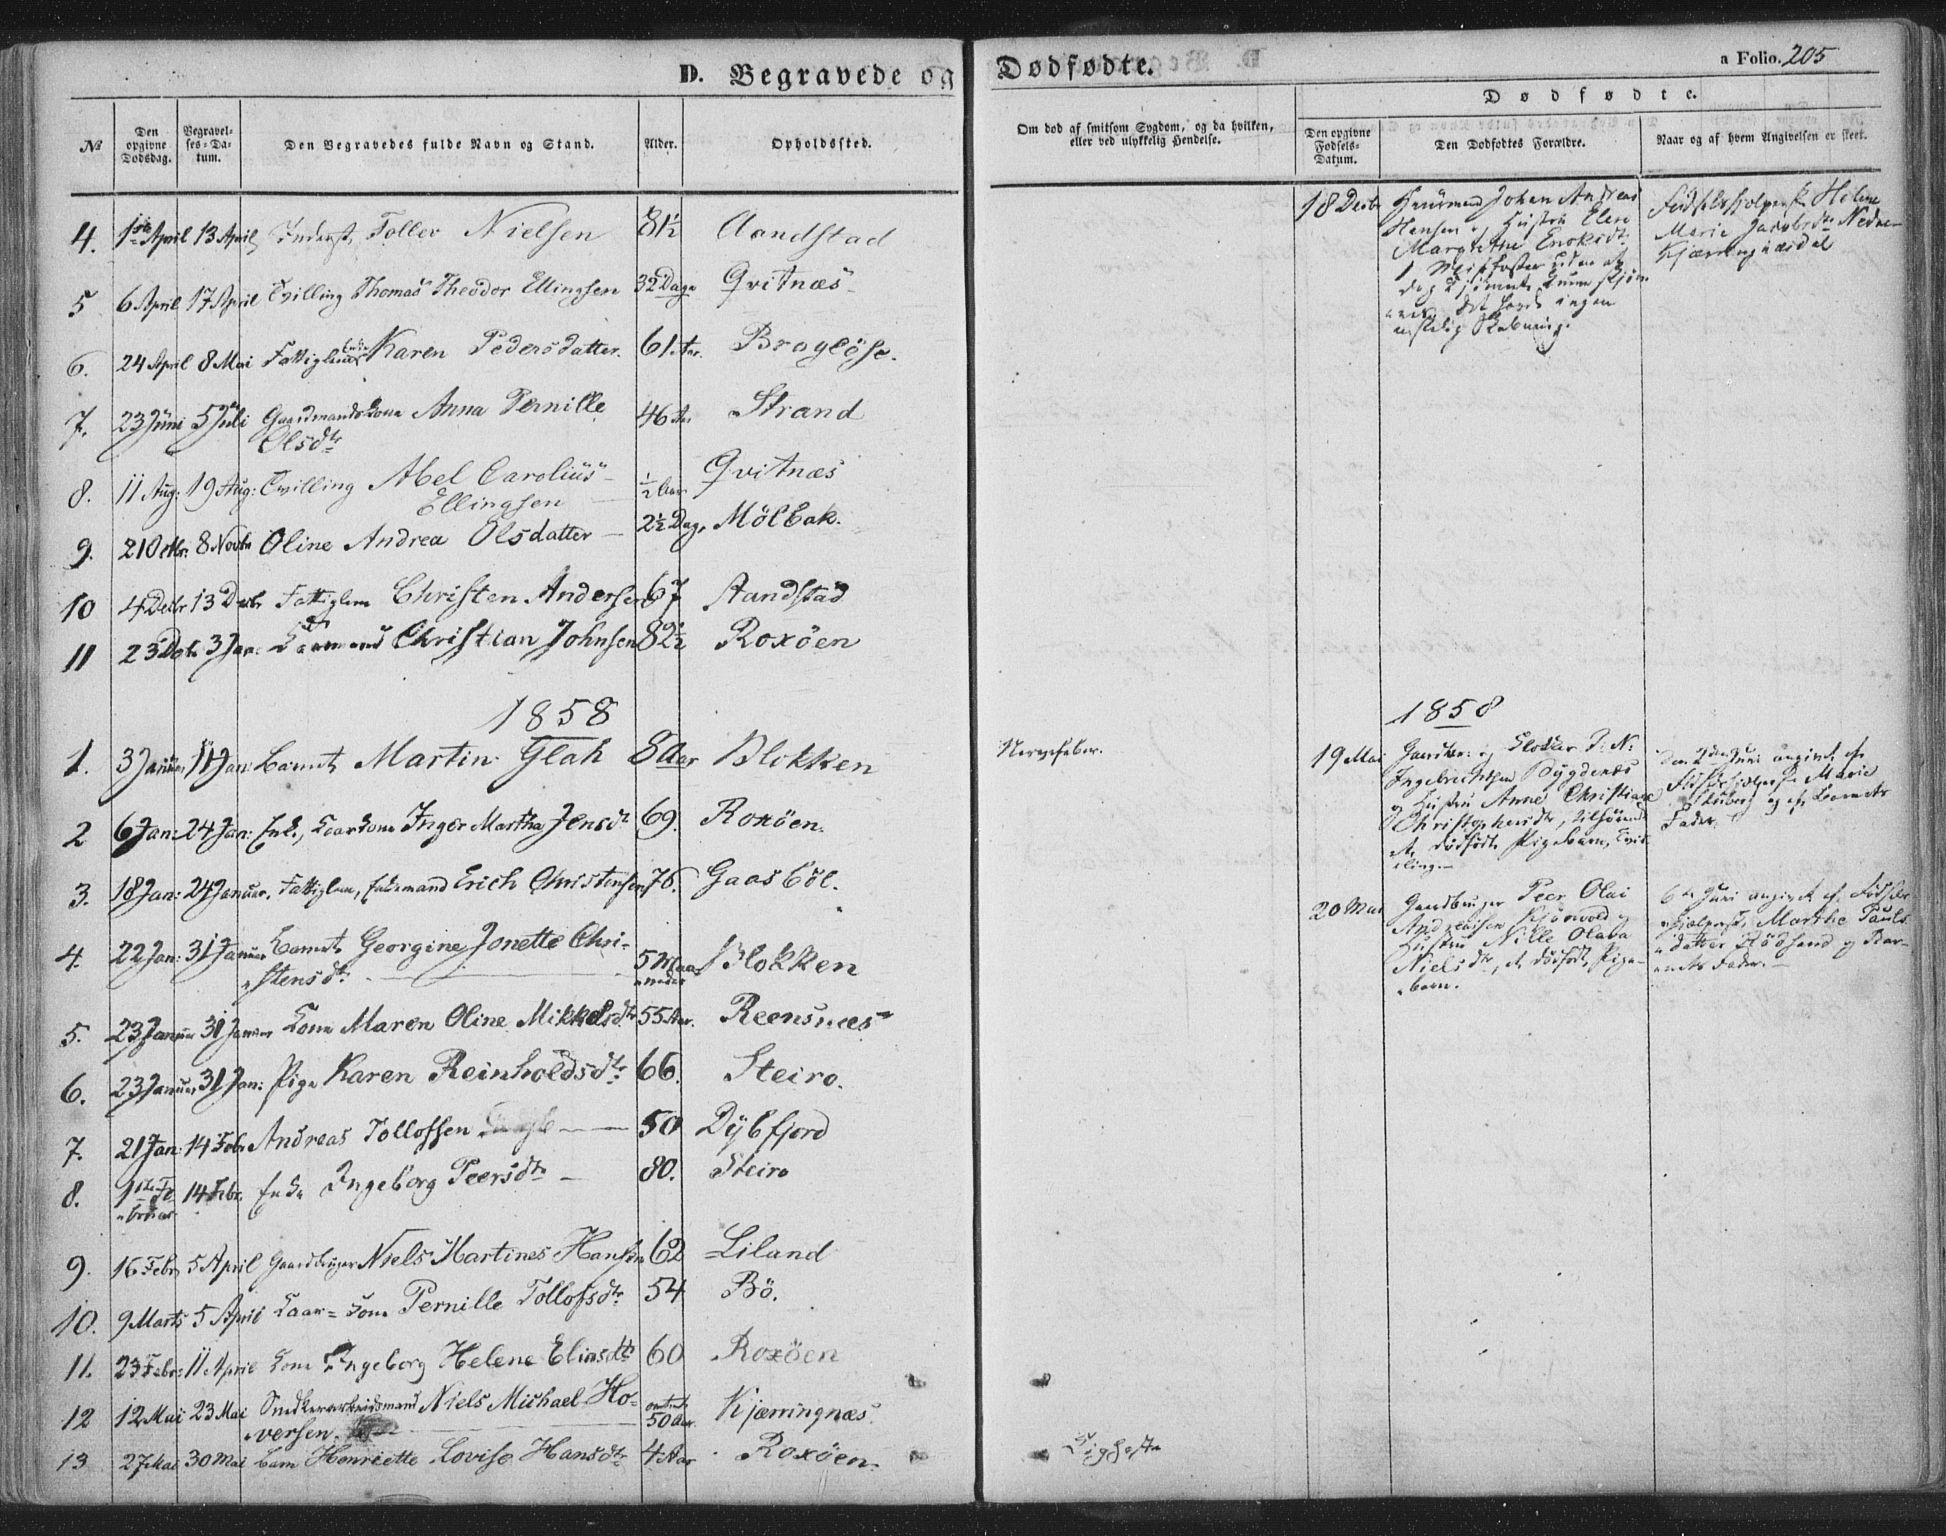 D. Begravede og
Dødfødte.
a Folio. 205
Dødfødte.
№
Den opgivne Dødsdag.
Begravelses-Datum.
Den Begravedes fulde Navn og Stand.
Alder.
Opholdssted.
Om død af smitsom Sygdom, og da hvilken, eller ved ulykkelig Hendelse.
Den opgivne Fødsels-Datum.
Den Dødfødtes Forældre.
Naar og af hvem Angivelsen er skeet.
4. 1ste April 13 April Inderst, Toller Nielsen 81½ Aandstad
5 6 April 17 April Tvilling Thomas Theodor Ellingsen 32 Dage Qvitnæs
6. 24 April 8 Mai Fattiglem Enke Karen Pedersdatter. 61 Aar. Brogløse.
7. 23 Juni 5 Juli Gaardmandskone Anna Pernille 46 Aar Strand
Olsdtr
8. 11 Aug: 19 Aug: Tvilling Abel Carolius ½ Aar Qvitnæs
Ellingsen
9. 21 Octbr. 8 Novbr Oline Andrea Olsdatter 2½ Dage Mölbak.
10 4 Decbr 13 Decbr Fattiglem Christen Andersen 67 Aandstad
11 23 Dcbr 3 Jan: Kaarmand Christian Johnsen 82½ Roxöen
1858
1. 3 Januar 11 Jan: Barnet Martin Glah 8 Aar Blokken
2 6 Jan: 24 Jan: Enke, Kaarkone Inger Martha Jensdtr 69. Roxöen.
3. 18 Jan: 24 Januar. Fattiglem, Enkemand Erich Christensen 76. Gaasböl.
4. 22 Jan: 31 Januar Barnet Georgine Jonette Chri-
stensdtr. 5 Maaneder Blokken
5. 23 Januar 31 Januar Kone Maren Oline Mikkelsdtr 55 Aar. Reensnees
6. 23 Januar 31 Jan: Pige Karen Reinholdsdtr 66. Steiro.
7. 21 Jan: 14 Febr Andreas Tollofsen 50 Dybfjord
8. 1ste Februar 14 Febr. Enke Ingeborg Peersdtr 80. Steiro
9. 16 Febr 5 April Gaardbruger Niels Martines Hansen 62 Liland
10. 9 Marts 5 April Kaar-Kone Pernille Tollofsdtr. 54 Bö.
11. 23 Febr: 11 April Kone Ingeborg Helene Eliasdtr 60 Roxöen
12 12 Mai 23 Mai Snedkerarbeidsmand Niels Michael Ho-
versen. omtrent 50 Aar. Kjærringnæs.
13 27 Mai 30 Mai Barn Henriette Lovise Hansdtr 4 Aar. Roxöen.
Nervefeber.
18 Decbr Huusmand Johan Andreas
Hansen og Hustru Elen
Margrethe Enoksdtr.
Fødselshjelperske Helene
Marie Jacobsdtr Nedre
Kjærringnæsdal
1858
19 Mai Gaardbr: og Klokker P: N:
Ingebrechtsen Bygdenæs
og Hustru Anne Christiane
Christophersdtr,
et dødfødt Pigebarn, Tvil-
ling.
den 2den Juni angivet af
Fødselshjelperske Marie
Stuberg og af Barnets
Fader.
20 Mai Gaardbruger Peer Olai
Andreassen Kjörvold og
Hustru Nille Olava
Nielsdtr, et dødfødt Pige-
barn.
6te Juni angivet af Fødsels-
hjelperske Marthe Pauls-
datter Hödsand og Bar-
nets Fader.